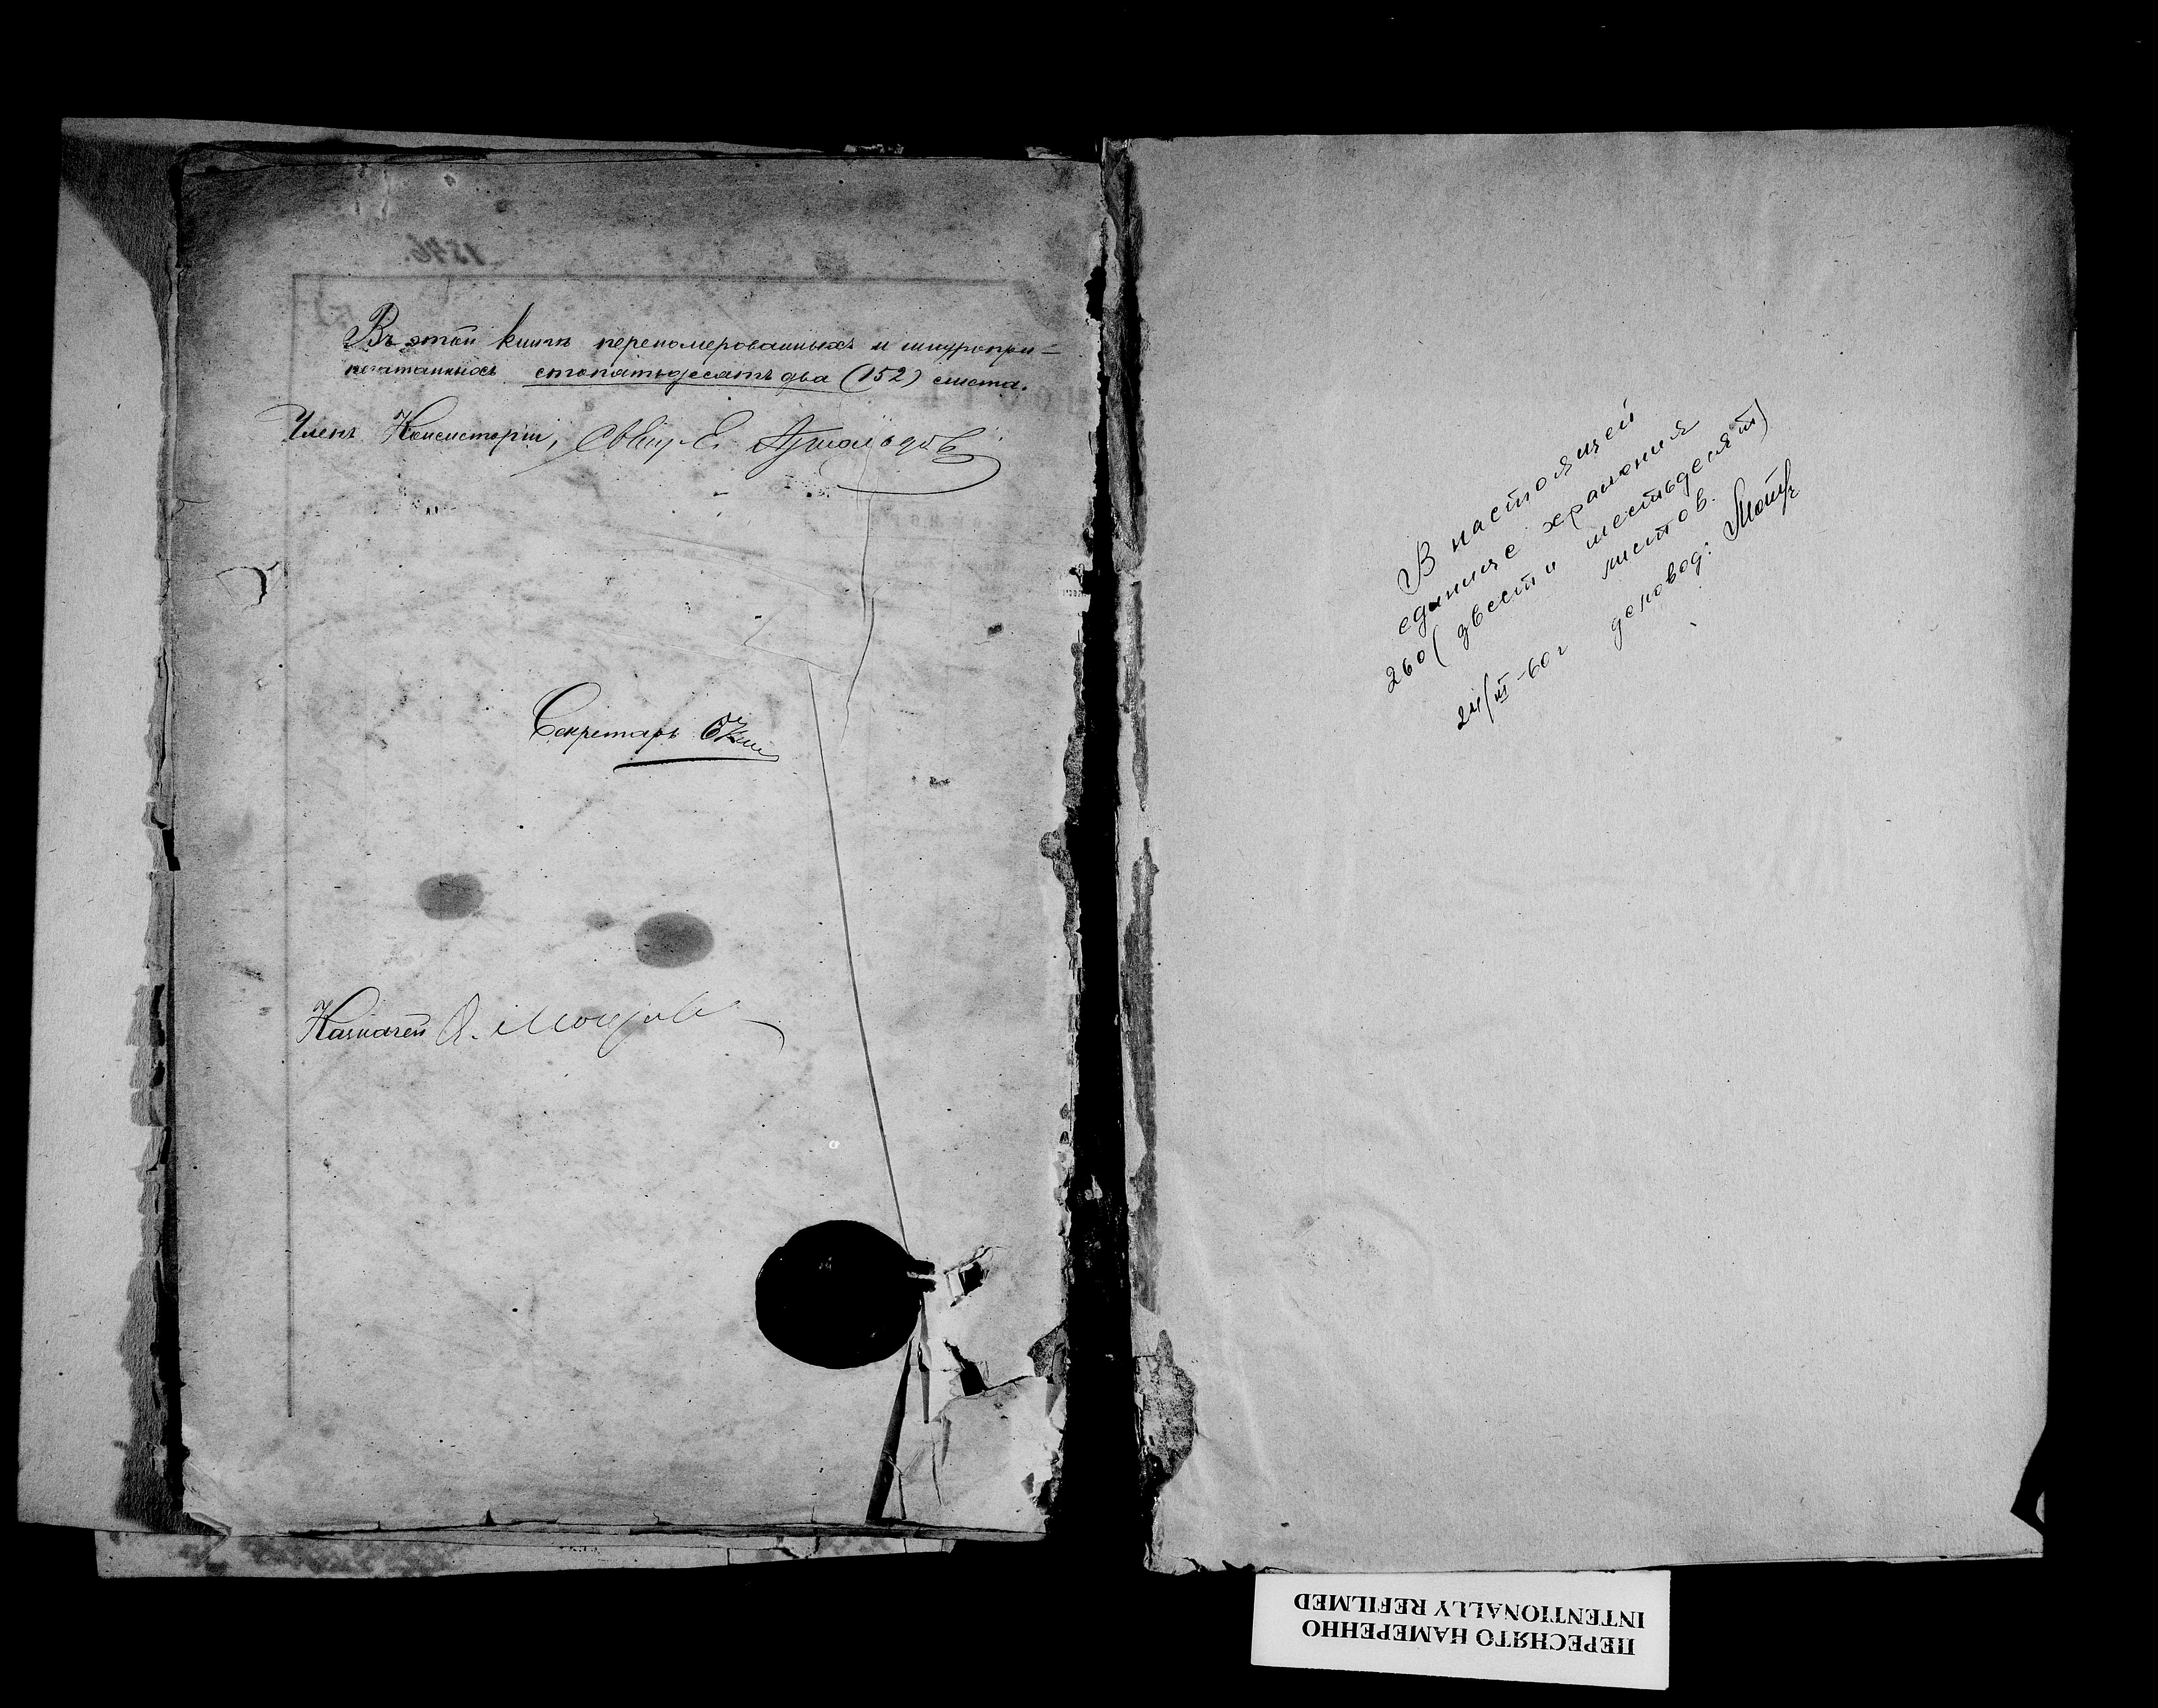 Въ этой книгѣ перенумерованныхъ и шнуропри-
печатанныхъ стопятьдесятъ два (152) листа.
Членъ Консисторіи, Свящ. Е.
Секретарь
Казначей А.
В настоящей
единице хранения
260 (двести шестьдесят)
листов.
24/III-60г деловод:
ПЕРЕСНЯТО НАМЕРЕННО
INTENTIONALLY REFILMED